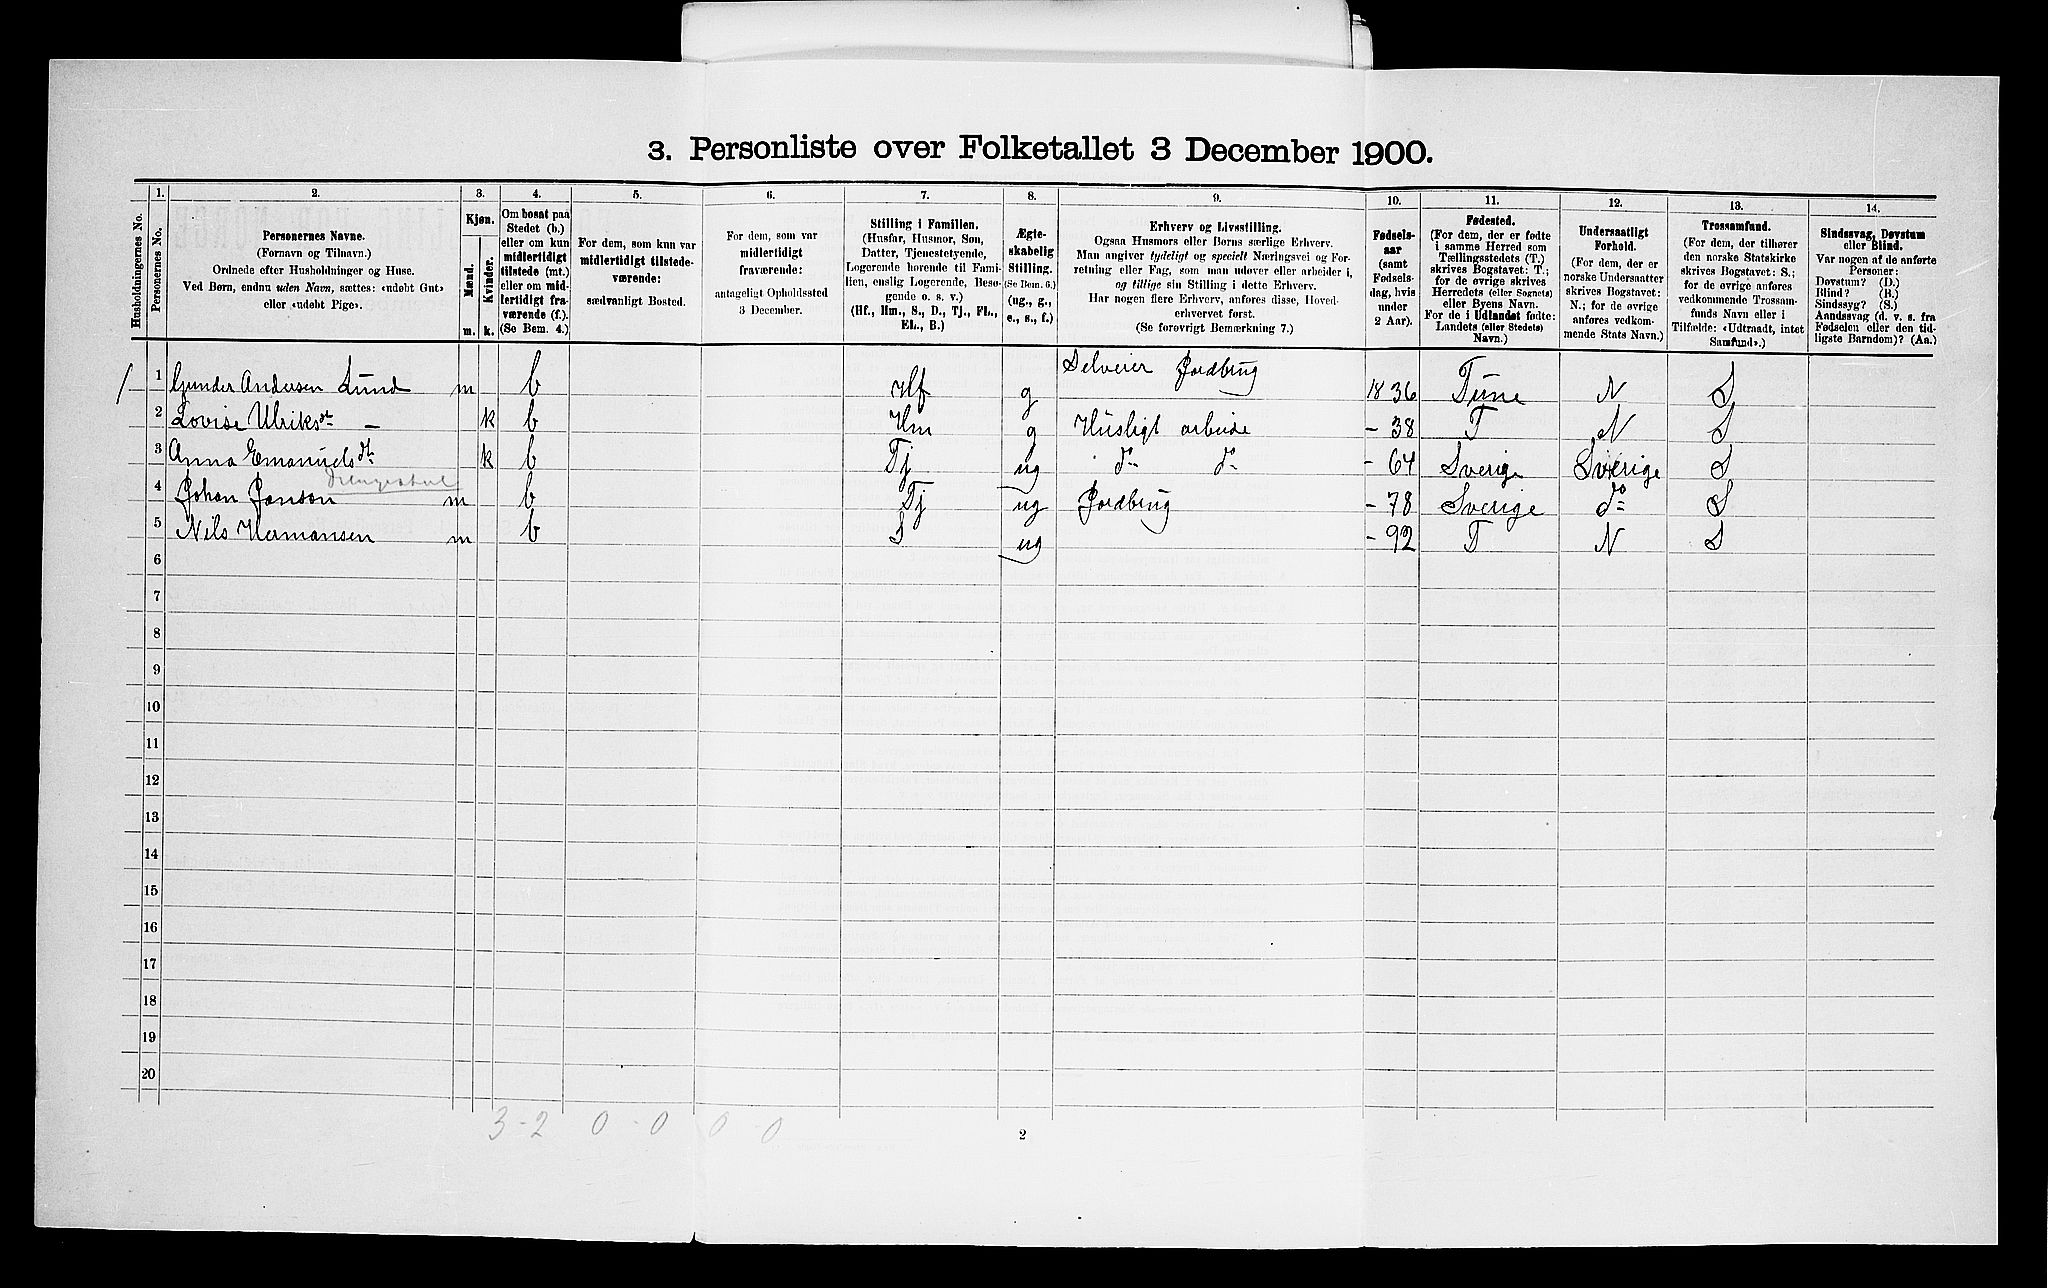 3. Personliste over Folketallet 3 December 1900.
Husholdningernes No.
1.
Personernes No.
2.
Personernes Navne.
(Fornavn og Tilnavn.)
Ordnede efter Husholdninger og Huse.
Ved Børn, endnu uden Navn, sættes: «udøbt Gut»
eller «udøbt Pige».
3.
Kjøn.
Mænd.
Kvinder.
m. k.
4.
Om bosat paa
Stedet (b.)
eller om kun
midlertidigt
tilstede (mt.)
eller om mid-
lertidigt fra-
værende (f.).
(Se Bem. 4.)
5.
For dem, som kun var
midlertidigt tilstede-
værende:
sædvanligt Bosted.
6.
For dem, som var
midlertidigt
fraværende:
antageligt Opholdssted
3 December.
7.
Stilling i Familien.
(Husfar, Husmor, Søn,
Datter, Tjenestetyende,
Logerende hørende til Fami-
lien, enslig Logerende, Besø-
gende o. s. v.)
(Hf., Hm., S., D., Tj., FL.,
EL., B.)
8.
Ægte-
skabelig
Stilling.
(Se Bem. 6.)
(ug., g.,
e., s., f.)
9.
Erhverv og Livsstilling.
Ogsaa Husmors eller Børns særlige Erhverv.
Man angiver tydeligt og specielt Næringsvei og For-
retning eller Fag, som man udøver eller arbeider i,
og tillige sin Stilling i dette Erhverv.
Har nogen flere Erhverv, anføres disse, Hoved-
erhvervet først.
(Se forøvrigt Bemærkning 7.)
10.
Fødsels-
aar
(samt
Fødsels-
dag, hvis
under
2 Aar).
11.
Fødested.
(For dem, der er fødte
i samme Herred som
Tællingsstedets (T.)
skrives Bogstavet: T.;
for de øvrige skrives
Herredets (eller Sognets)
eller Byens Navn.
For de i Udlandet fødte:
Landets (eller Stedets)
Navn.)
12.
Undersaatligt
Forhold.
(For dem, der er
norske Undersaatter
skrives Bogstavet:
N.; for de øvrige
anføres vedkom-
mende Stats Navn.)
13.
Trossamfund.
(For dem, der tilhører
den norske Statskirke
skrives Bogstavet: S.;
for de øvrige anføres
vedkommende Trossam-
funds Navn eller i
Tilfælde: «Udtraadt, intet
Samfund».)
14.
Sindssvag, Døvstum
eller Blind.
Var nogen af de anførte
Personer:
Døvstum? (D.)
Blind? (B.)
Sindssyg? (S.)
Aandssvag (d. v. s. fra
Fødselen eller den tid-
ligste Barndom)? (Aa.)
1 1 Gunder Andersen Lund m b Hf g Selveier Jordbrug 1836 Tune N S
2 Lovise Ulriksdt — k b Hm g Husligt arbeide - 38 T N S
3 Anna Emanuelsdt. k b Tj ug do do - 64 Sverige Sverige S
4 Johan Janson m b Tj ug Jordbrug - 78 Sverige do S
5 Nils Hermansen m b S ug - 92 T N S
6
7
8
9
10
11
12
13
14
15
16
17
18
19
20
3 - 2 0 - 0 0 - 0
2